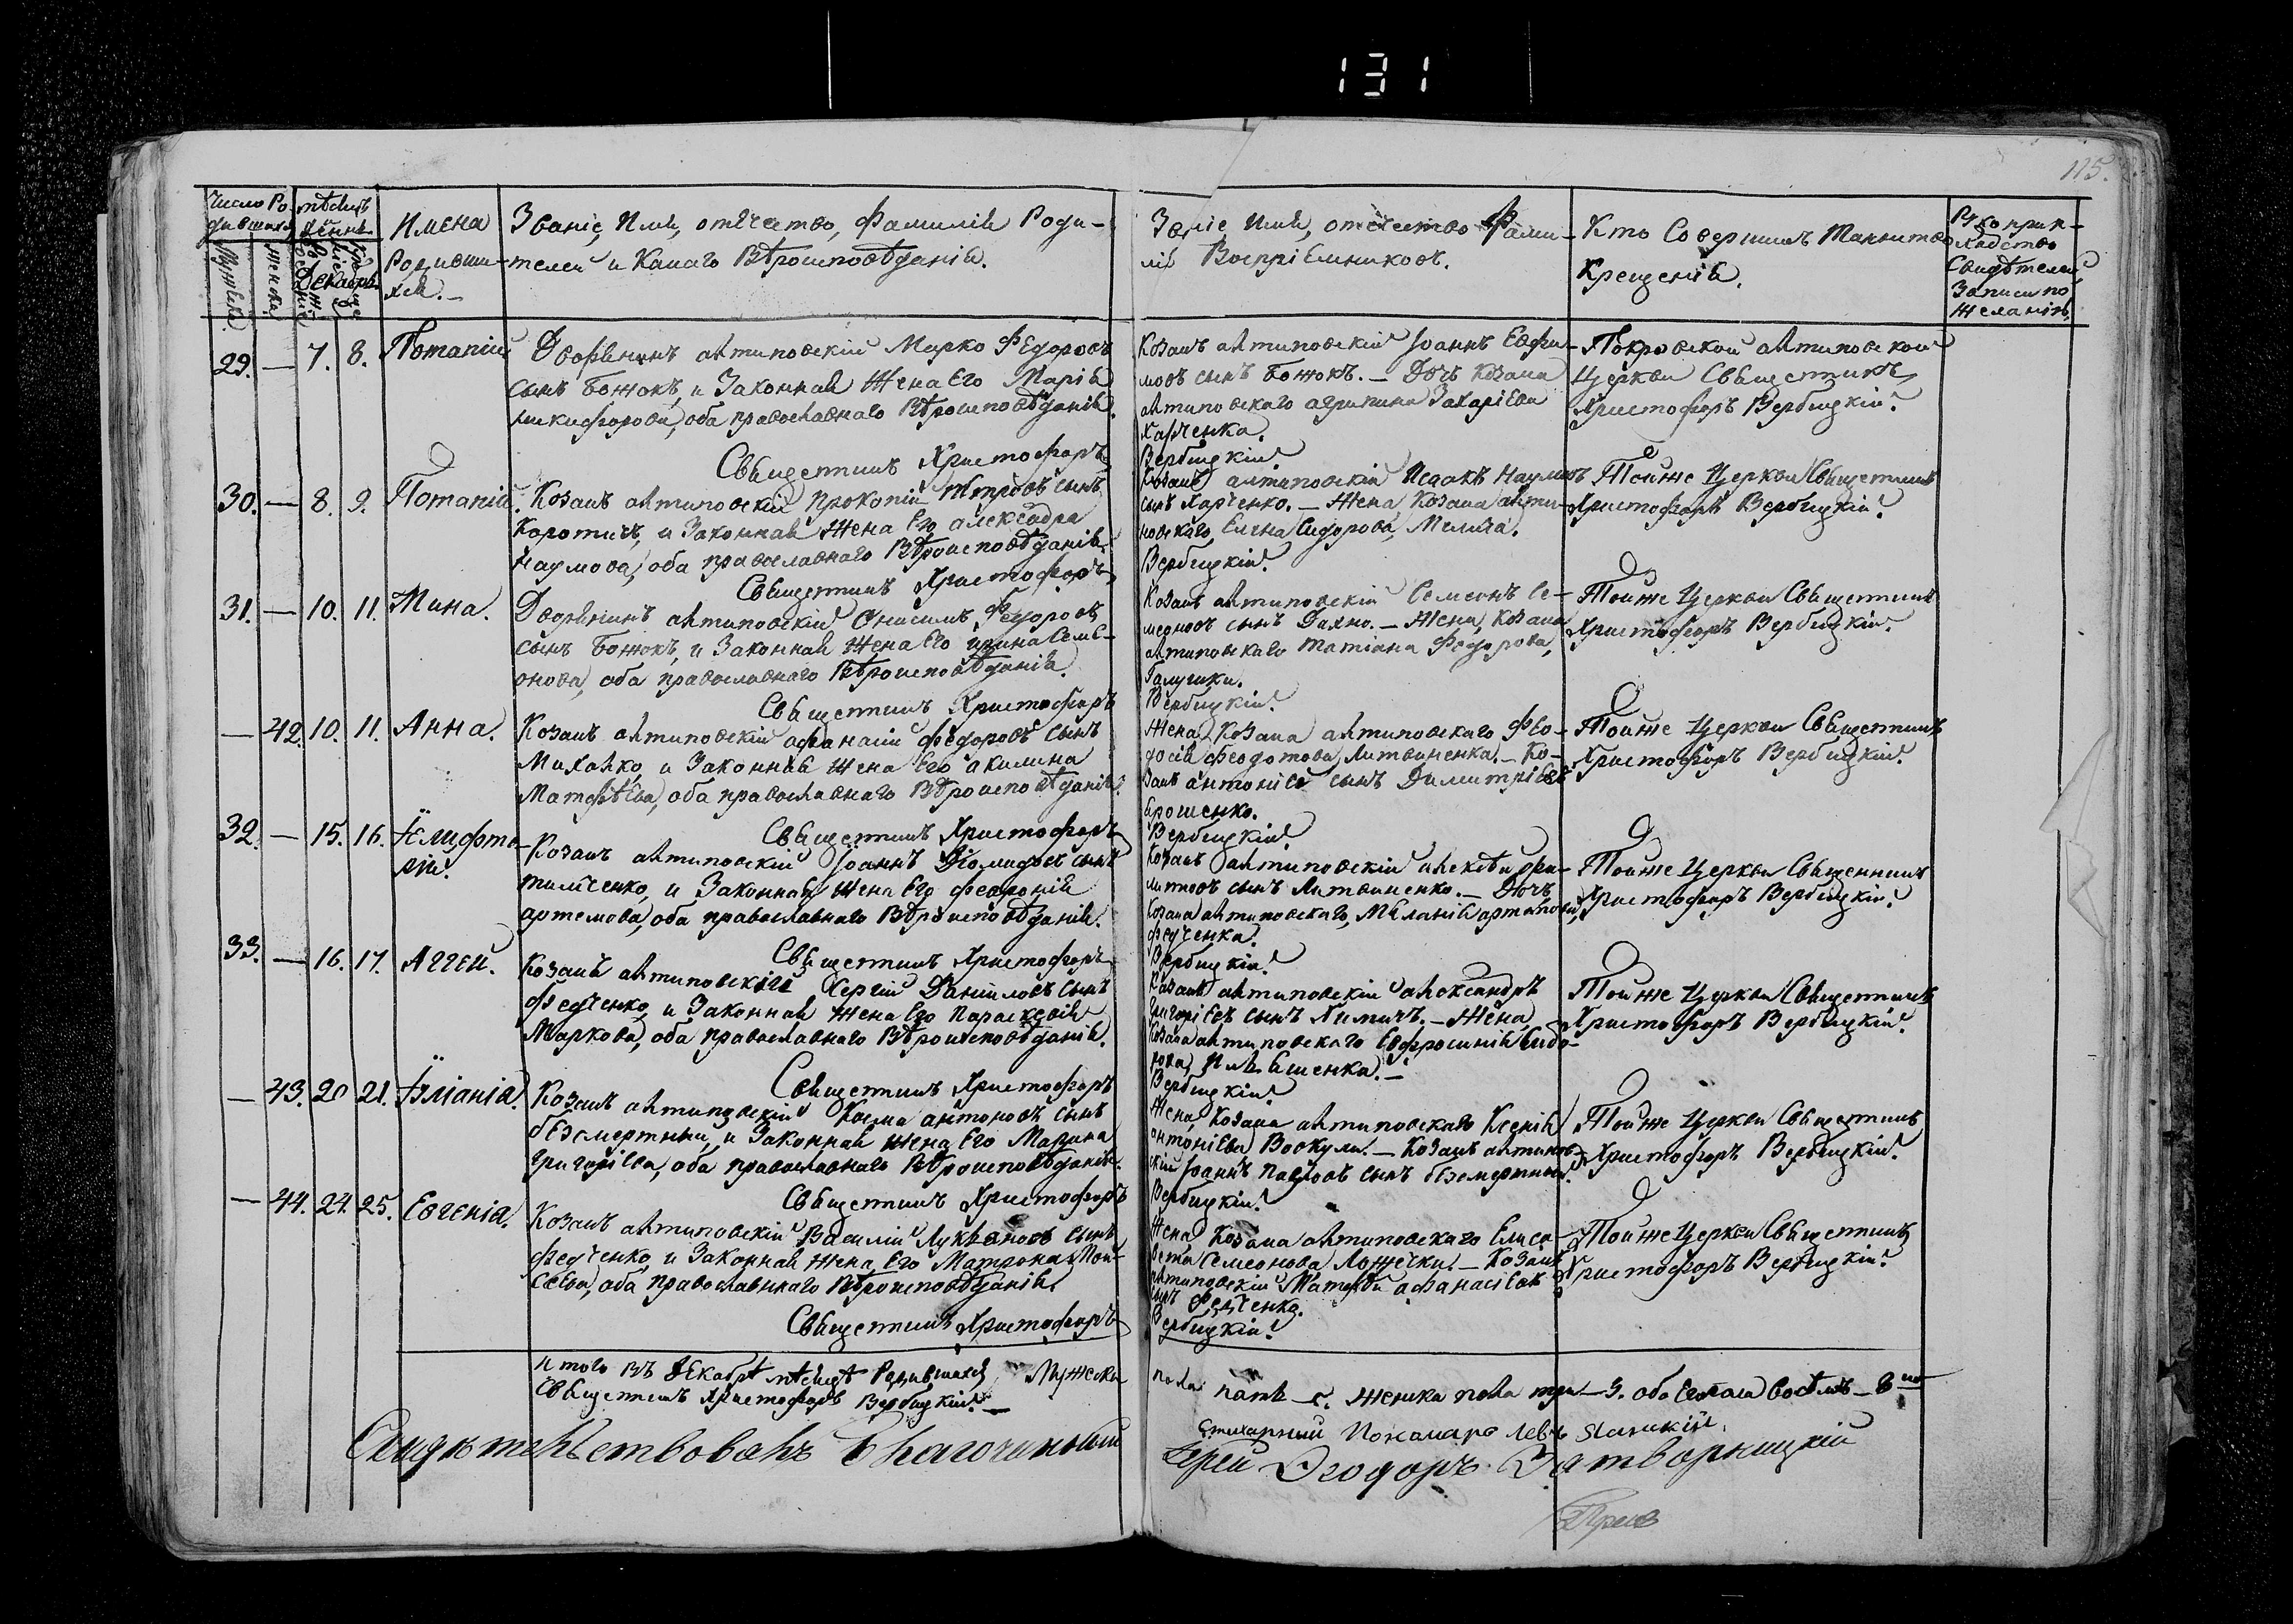 131
115.
Число Ро-
дившихся
Мѣсяцъ
День
Мужеска
Женска
Рожденіе
Декабрь
Крещеніе
Имена
Родивши-
хся. –
Званіе, Имя, отчество, Фамилія Роди-
телей и Какаго Вѣроисповѣданія.
Званіе, Имя, отчество Фами-
лія Воспріемниковъ.
Кто Совершилъ Таинство
Крещенія.
Рукоприк-
ладство
Свидѣтелей
Записи по
Желанію
29. — 7. 8. Потапій
Дворянинъ антиповскій Марко Федоровъ
сынъ Божокъ, и Законная Жена Его Марія
никифорова, оба православнаго Вѣроисповѣданія.
Священникъ Христофоръ
Козакъ антиповскій Іоаннъ Евфи-
мовъ сынъ Божокъ. – Дочь Козака
антиповскаго агрипина Захаріева
Харченка.
Вербицкій
Покровской антиповской
Церкви Священникъ
Христофоръ Вербицкій.
30. — 8. 9. Потапій.
Козакъ антиповскій Прокопій Петровъ сынъ
Коротичъ, и Законная Жена Его александра
Наумова, оба православнаго Вѣроисповѣданія.
Священникъ Христофоръ
Козакъ антиповскій Исаакъ Наумовъ
сынъ Харченко. – Жена Козака анти-
повскаго, Елена Сидорова,
Вербицкій.
Тойже Церкви Священникъ
Христофоръ Вербицкій.
31. — 10. 11. Мина.
Дворянинъ антиповскій Онисимъ Федоровъ
сынъ Божокъ, и Законная Жена Его ирина Семе-
онова, оба православнаго Вѣроисповѣданія.
Священникъ Христофоръ
Козакъ антиповскій Семеонъ Се-
меоновъ сынъ Дахно. – Жена Козака
антиповскаго Татіана Федорова,
Галушки.
Вербицкій.
Тойже Церкви Священникъ
Христофоръ Вербицкій.
— 42. 10. 11. Анна.
Козакъ антиповскій афанасій Федоровъ Сынъ
Михалко, и Законная Жена Его акилина
Матфѣева, оба православнаго Вѣроисповѣданія.
Священникъ Христофоръ
Жена Козака антиповскаго Фео-
досія Феодотова, Литвиненка. – Ко-
закъ антоній сынъ Димитріевъ
Ярошенко.
Вербицкій.
Тойже Церкви Священникъ
Христофоръ Вербицкій.
32. — 15. 16. Елифте-
рій.
Козакъ антиповскій Іоаннъ Діомидовъ сынъ
Тимченко, и Законная Жена Его феѵронія
артемова, оба православнаго Вѣроисповѣданія.
Священникъ Христофоръ
Козакъ антиповскій
сынъ Литвиненко. – Дочь
Козака антиповскаго, Меланія
Федченка.
Вербицкій.
Тойже Церкви Священникъ
Христофоръ Вербицкій.
33. — 16. 17. Аггей.
Козакъ антиповскій Сергій Даніиловъ сынъ
Федченко, и Законная Жена Его Параскевія
Маркова, оба православнаго Вѣроисповѣданія.
Священникъ Христофоръ
Козакъ антиповскій александръ
Григоріевъ сынъ – Жена
Козака антиповскаго Евфросинія Сидо-
рова,
Вербицкій.
Тойже Церкви Священникъ
Христофоръ Вербицкій.
— 43. 20 21. Іѵліанія.
Козакъ антиповскій Косма антоновъ сынъ
безсмертный, и Законная Жена Его Марина
Григоріева, оба православнаго Вѣроисповѣданія.
Священникъ Христофоръ
Жена Козака антиповскаго Ксенія
антоніева Воскула. – Козакъ антипов-
скій Іоаннъ Павловъ сынъ безсмертный.
Вербицкій.
Тойже Церкви Священникъ
Христофоръ Вербицкій.
— 44. 24. 25. Евгенія.
Козакъ антиповскій Василій Лукьяновъ Сынъ
Федченко, и Законная Жена Его Матрона Мои-
сеева, оба православнаго Вѣроисповѣданія.
Священникъ Христофоръ
Жена Козака антиповскаго Елиса-
вета Семеонова Ложечки. – Козакъ
антиповскій Матфѣй афанасіевъ
сынъ Федченко.
Вербицкій.
Тойже Церкви Священникъ
Христофоръ Вербицкій.
Итого въ Декабрѣ мѣсяцѣ Родившихся Мужеска
пола пять – 5. Женска пола три – 3. обоего пола восемь – 8
Священникъ Христофоръ Вербицкій. –
Стихарный Пономарь Левъ
Свидѣтельствовалъ Благочинный
Іерей Ѳеодоръ Затворницкій